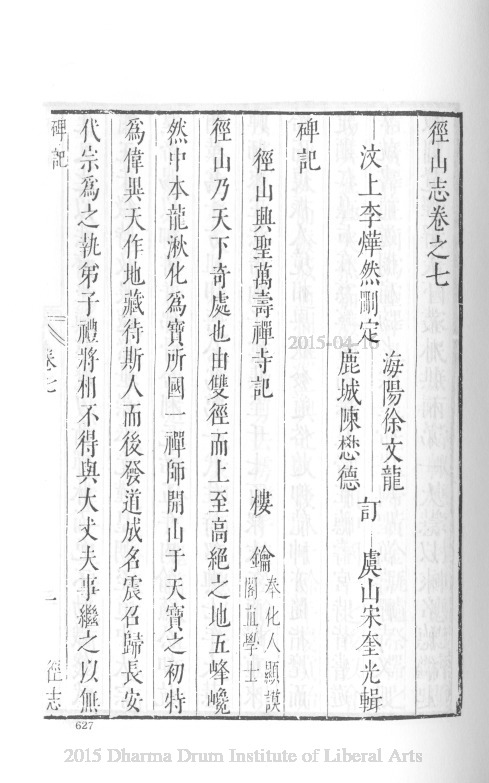 徑山志卷之七
汶上李燁然刪定
海陽徐文龍
鹿城陳懋德
訂
虞山宋奎光輯
碑記
徑山興聖萬壽禪寺記
樓鑰
奉化人顯謨
閣直學士
徑山乃天下奇處也由雙徑而上至高絕之地五峰巉
然中本龍湫化為寶所國一禪師開山于天寶之初特
為偉異天作地藏待斯人而後發道成名震召歸長安
代宗為之執弟子禮將相不得與大丈夫事繼之以無
碑記
卷七
一
徑志
627
2015-04-16
2015 Dharma Drum Institute of Liberal Arts